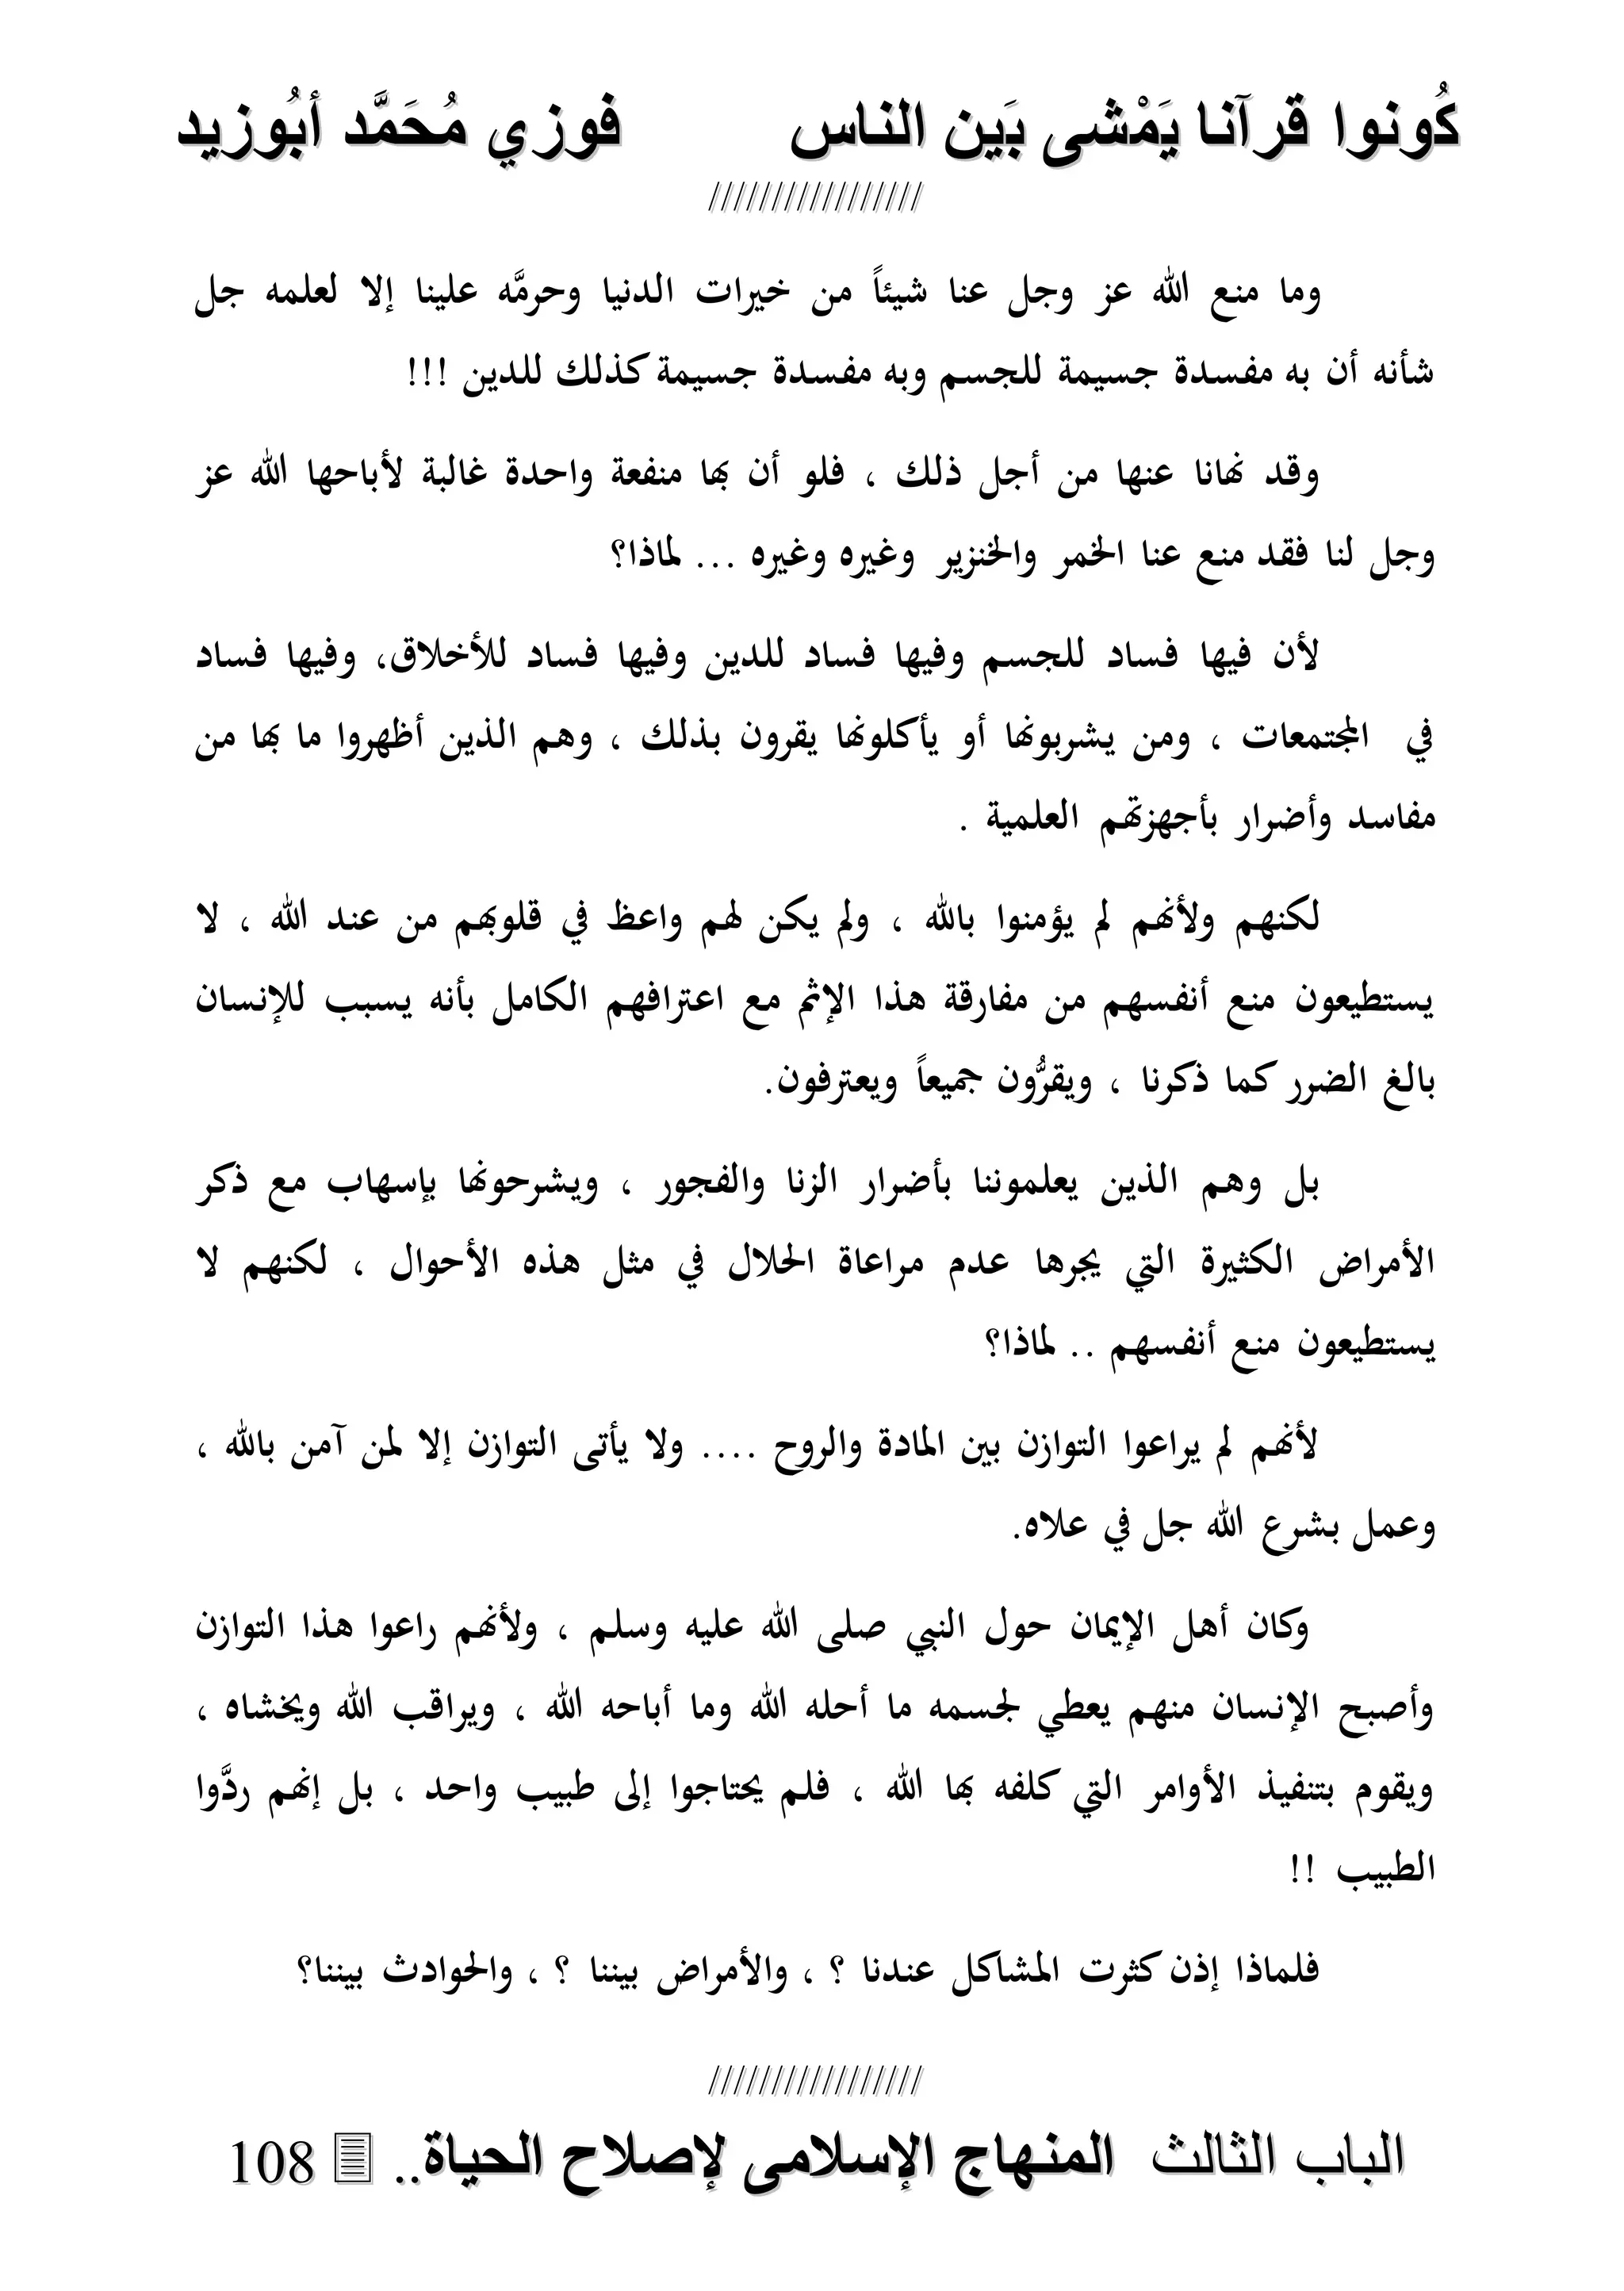 كُونوا قرآنا يَمْشى بَين الناس فوزي مُحَمَّد أبُوزيد
/////////////////
وما منع الله عز وجل عنا شيئاً من خيرات الدنيا وحرمَّه علينا إلا لعلمه جل
شأنه أن به مفسدة جسيمة للجسم وبه مفسدة جسيمة كذلك للدين !!!
وقد نهانا عنها من أجل ذلك ، فلو أن بها منفعة واحدة غالبة لأباحها الله عز
وجل لنا فقد منع عنا الخمر والخنزير وغيره وغيره ... لماذا؟
لأن فيها فساد للجسم وفيها فساد للدين وفيها فساد للأخلاق، وفيها فساد
في المجتمعات ، ومن يشربونها أو يأكلونها يقرون بذلك ، وهم الذين أظهروا ما بها من
مفاسد وأضرار بأجهزتهم العلمية .
لكنهم ولأنهم لم يؤمنوا بالله ، ولم يكن لهم واعظ في قلوبهم من عند الله ، لا
يستطيعون منع أنفسهم من مفارقة هذا الإثم مع اعترافهم الكامل بأنه يسبب للإنسان
بالغ الضرر كما ذكرنا ، ويقرُّون جميعاً ويعترفون.
بل وهم الذين يعلموننا بأضرار الزنا والفجور ، ويشرحونها بإسهاب مع ذكر
الأمراض الكثيرة التي يجرها عدم مراعاة الحلال في مثل هذه الأحوال ، لكنهم لا
يستطيعون منع أنفسهم .. لماذا؟
لأنهم لم يراعوا التوازن بين المادة والروح .... ولا يأتى التوازن إلا لمن آمن بالله ،
وعمل بشرع الله جل في علاه.
وكان أهل الإيمان حول النبي صلى الله عليه وسلم ، ولأنهم راعوا هذا التوازن
وأصبح الإنسان منهم يعطي لجسمه ما أحله الله وما أباحه الله ، ويراقب الله ويخشاه ،
ويقوم بتنفيذ الأوامر التي كلفه بها الله ، فلم يحتاجوا إلى طبيب واحد ، بل إنهم ردَّوا
الطبيب !!
فلماذا إذن كثرت المشاكل عندنا ؟ ، والأمراض بيننا ؟ ، والحوادث بيننا؟
/////////////////
الباب الثالث المنهاج الإسلامى لإصلاح الحياة.. 108